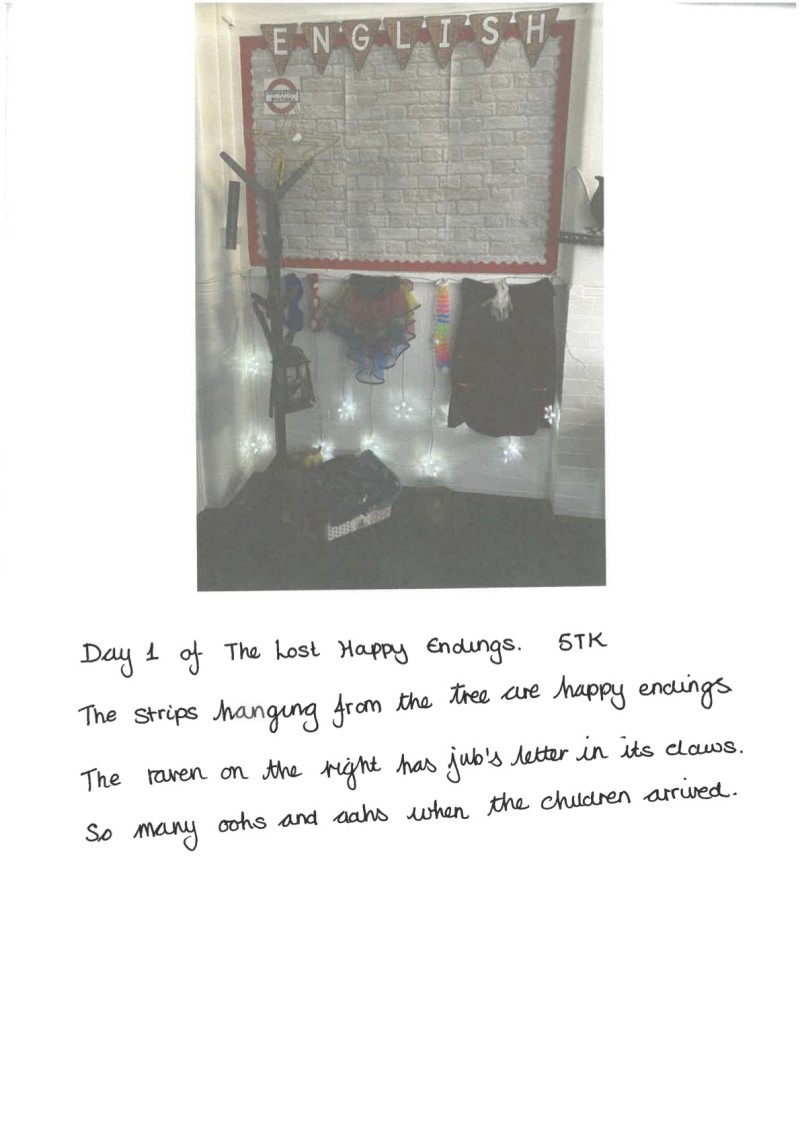 ENGLISH
Day 1 of The Lost Happy Endings. 5TK
The strips hanging from the tree are happy endings
The raven on the right has jub's letter in its claws.
So many oohs and aahs when the children arrived.